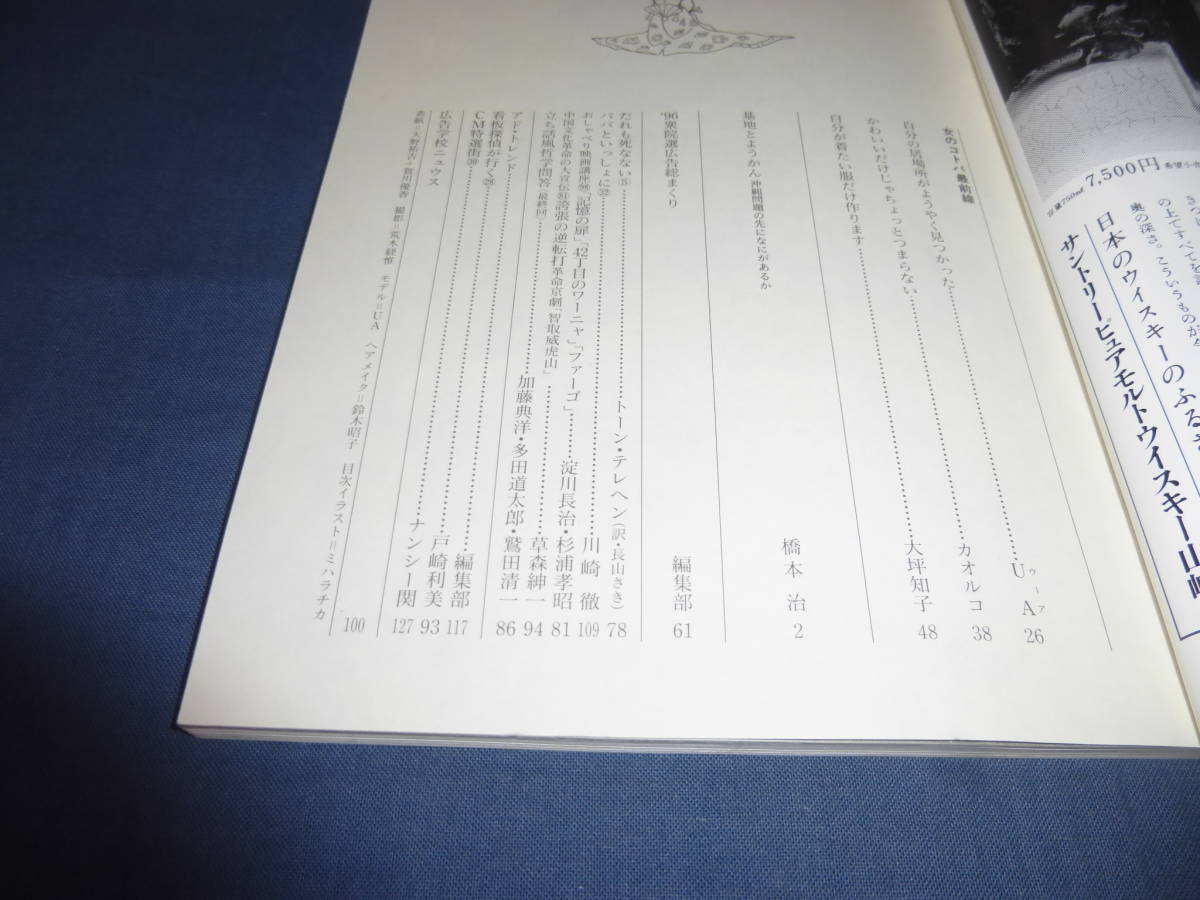 7,500円
の上ですべてを
奥の深さ。こういうものが
日本のウィスキーのふる
サントリーピュアモルトウイスキー山崎
女のコトバ最前線
自分の居場所がようやく見つかった……UA ウーア 26
かわいいだけじゃちょっとつまらない……カオルコ 38
自分が着たい服だけ作ります……大坪知子 48
基地とようかん 沖縄問題の先になにがあるか 橋本 治 2
'96衆院選広告総まくり 編集部 61
だれも死なない⑮……トーン・テレヘン(訳・長山さき) 78
パパといっしょに㉜……川崎 徹 109
おしゃべり映画講座「記憶の扉」「42丁目のワーニャ」「ファーゴ」……淀川長治・杉浦孝昭 81
中国文化革命の大宣伝 誇張の逆転打革命京劇「智取威虎山」……草森紳一 94
立ち話風哲学問答(最終回)……加藤典洋・多田道太郎・鷲田清一 86
アド・トレンド……編集部 117
看板探偵が行く……戸崎利美 93
CM特選街……ナンシー関 127
広告学校ニュウス 100
表紙=天野祐吉+賀川優香 撮影=荒木経惟 モデル=UA ヘアメイク=鈴木昭子 目次イラスト=ミハラチカ